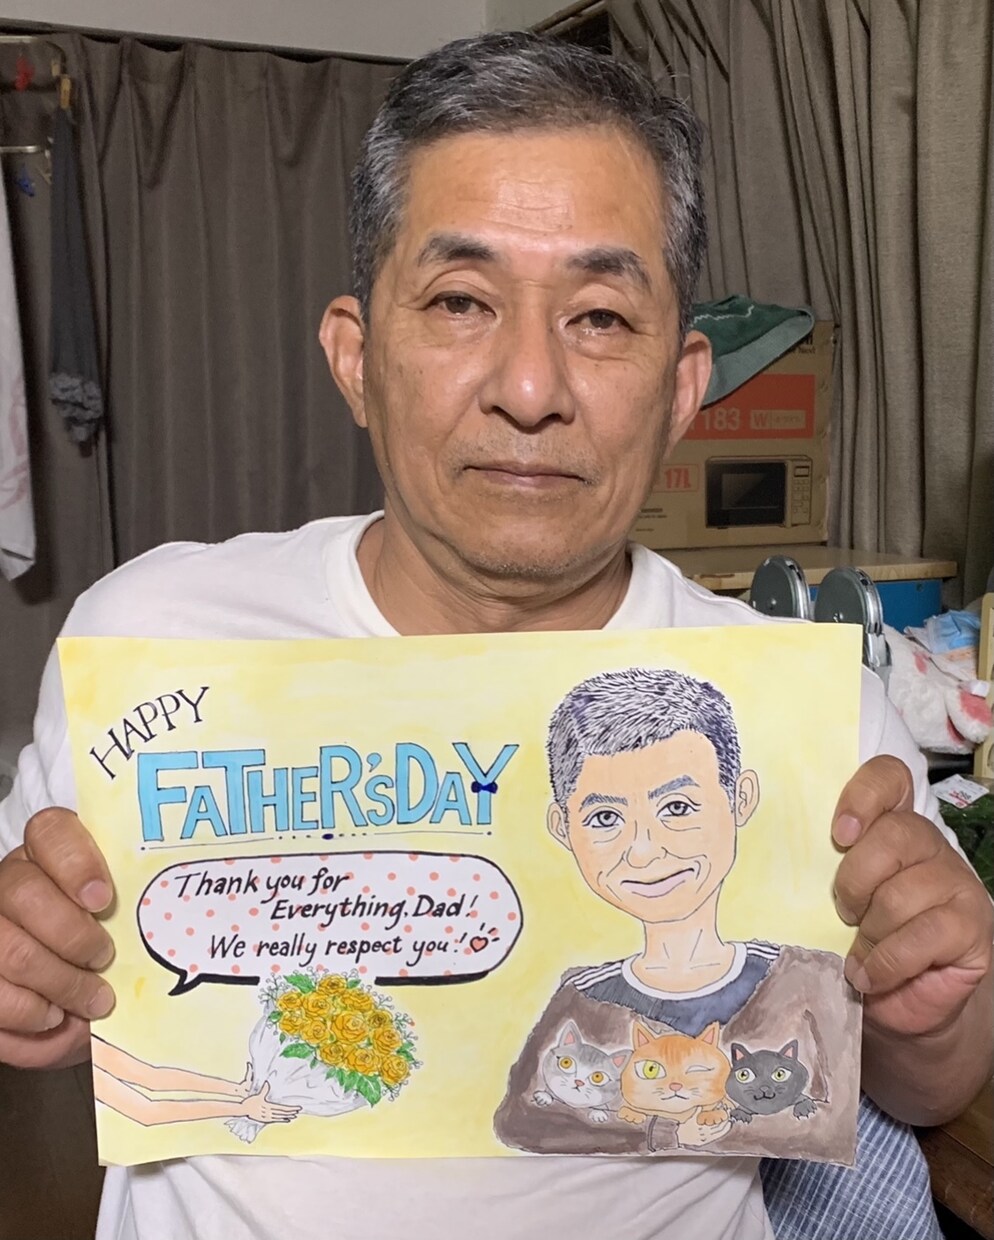 183
W
17L
HAPPY
FATHER'S DAY
Thank you for
Everything, Dad!
We really respect you!